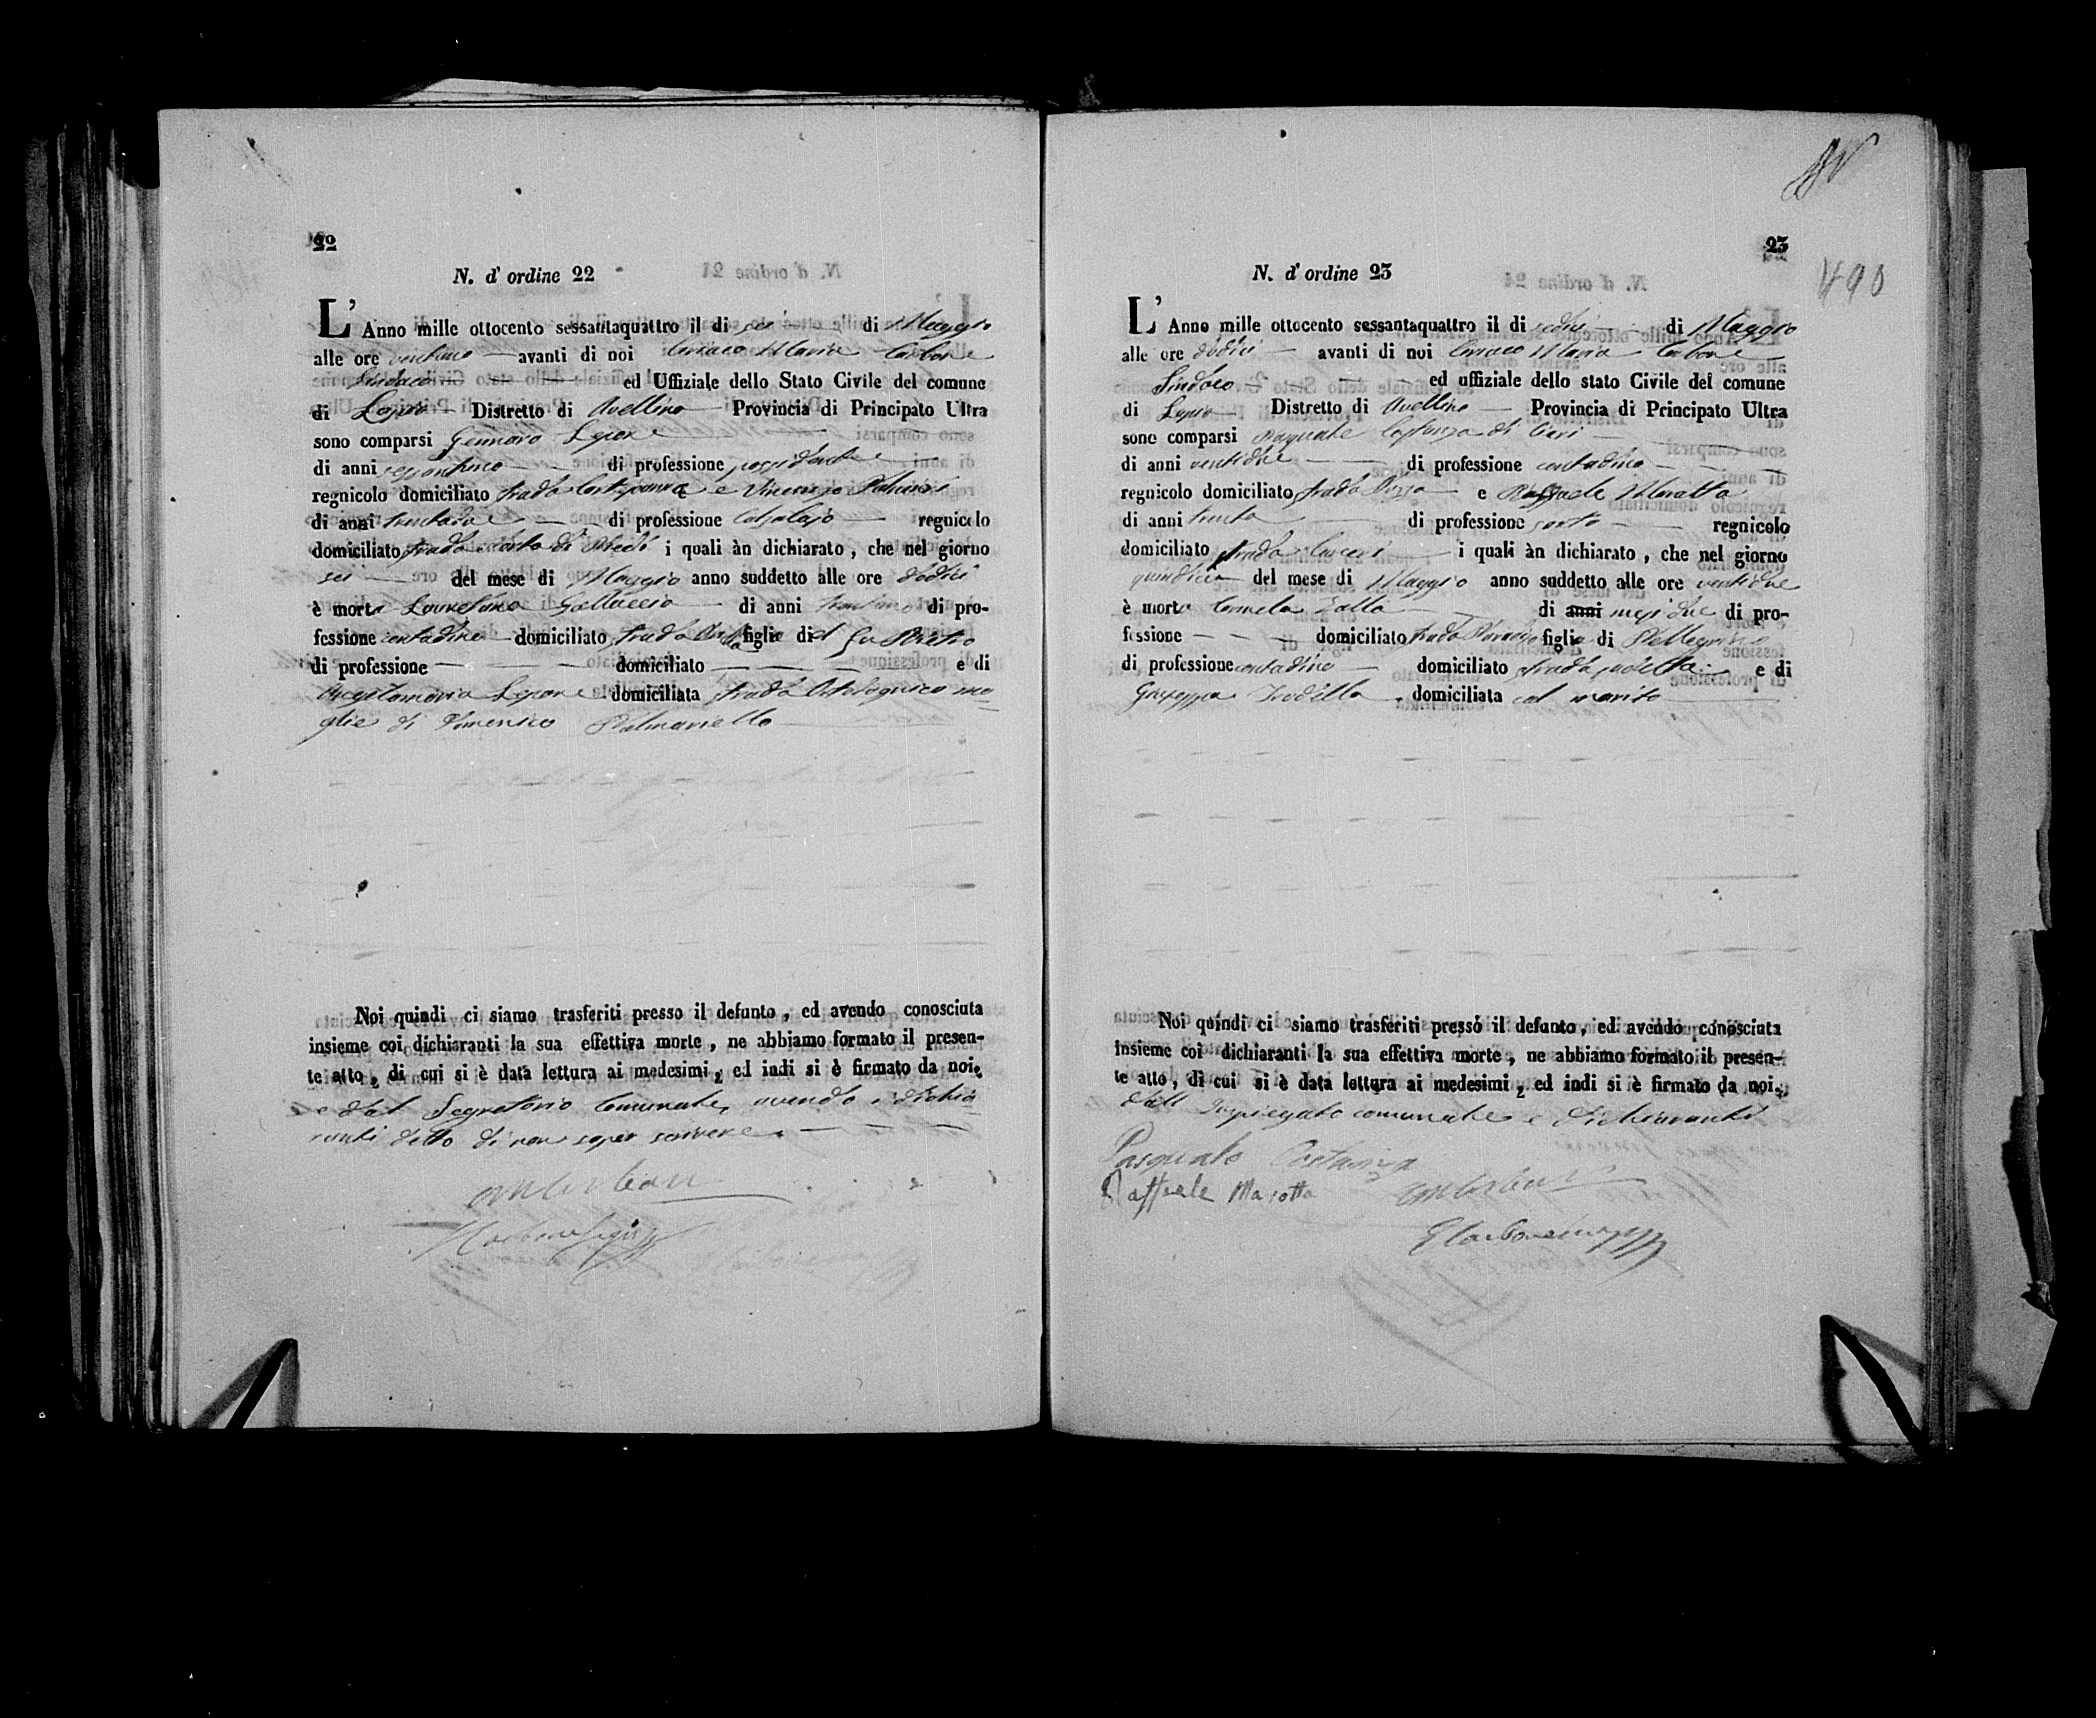 22
N. d' ordine 22
L' Anno mille ottocento sessantaquattro il di sei di Maggio
alle ore ventuno avanti di noi Ciriaco Maria Carbone
Sindaco ed Uffiziale dello Stato Civile del comune
di Lapio Distretto di Avellino Provincia di Principato Ultra
sono comparsi Gennaro Lepore
di anni sessantuno di professione possidente
regnicolo domiciliato strada e Vincenzo
di anni trentadue di professione Calzolajo regnicolo
domiciliato strada i quali àn dichiarato , che nel giorno
sei del mese di Maggio anno suddetto alle ore dodici
è morta Galluccio di anni di pro-
fessione contadina domiciliato strada figlia del fu Pietro
di professione domiciliato e di
Lepore domiciliata strada mo-
glie di Domenico Palmariello
Noi quindi ci siamo trasferiti presso il defunto , ed avendo conosciuta
insieme coi dichiaranti la sua effettiva morte , ne abbiamo formato il presen-
te atto , di cui si è data lettura ai medesimi , ed indi si è firmato da noi,
e dal Segretario Comunale, avendo i dichia-
ranti detto di non saper scrivere
23
490
N. d' ordine 23
L' Anno mille ottocento sessantaquattro il di sedici di Maggio
alle ore dodici avanti di noi Ciriaco Maria Carbone
Sindaco ed uffiziale dello stato Civile del comune
di Lapio Distretto di Avellino Provincia di Principato Ultra
sono comparsi Pasquale Costanza di Ciari
di anni ventidue di professione contadino
regnicolo domiciliato strada e Raffaele Marotta
di anni trenta di professione sarto regnicolo
domiciliato strada Carceri i quali àn dichiarato , che nel giorno
quindici del mese di Maggio anno suddetto alle ore ventidue
è morta Carmela Zalla di anni mesi due di pro-
fessione domiciliato strada figlia di Pellegrino
di professione contadino domiciliato strada e di
Giuseppa domiciliata col marito
Noi quindi ci siamo trasferiti presso il defunto, ed avendo conosciuta
insieme coi dichiaranti la sua effettiva morte , ne abbiamo formato il presen-
te atto , di cui si è data lettura ai medesimi , ed indi si è firmato da noi,
dall' Impiegato comunale e dichiaranti
Pasquale Costanza
Raffaele Marotta